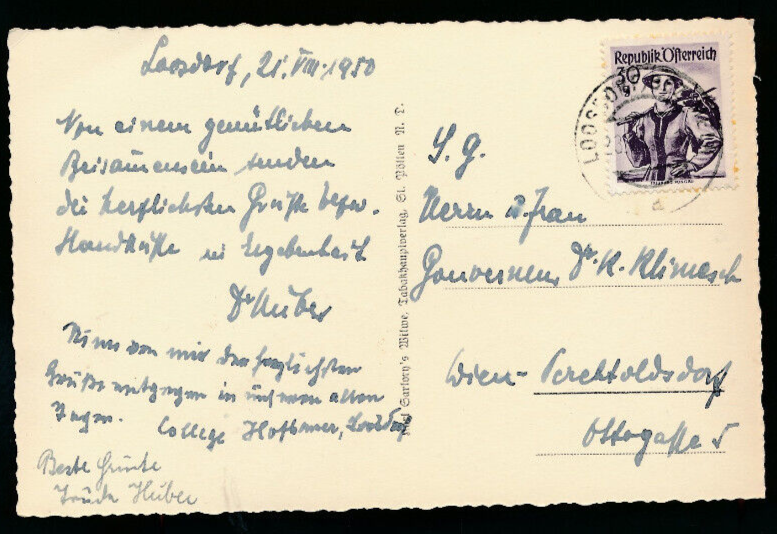 Loosdorf, 21. VIII. 1950
Von einem gemütlichen
Beisammensein senden
die herzlichsten Grüße bezw.
Handküße in Ergebenheit
Dr Huber
von mir den herzlichsten
Gruß entgegen in alten
College Hofbauer, Loosdorf
Beste Grüße
Truda Huber
Sartory's Witwe, Tabakhauptverlag, St. Pölten N. D.
Republik Österreich
30
LOOSDORF
S. g.
Herrn u. Frau
Gouverneur Dr. K. Klimesch
Wien - Perchtoldsdorf
Ottogasse 5